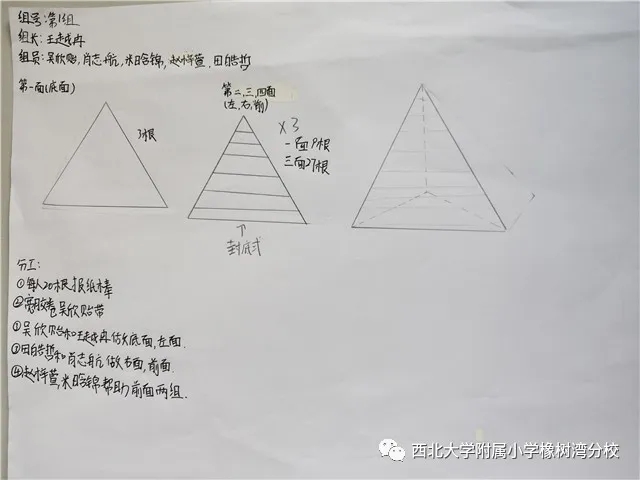 组号:第1组
组长:王起成冉
组员:吴欣贻,肖志航,米晗锦,赵梓萱.田皓哲
第一面(底面)
3根
第二,三,四面
(左,右,前)
×3
一面9根
三面27根
↑
封底式
分工:
①每人20根报纸棒
②胶卷吴欣贻带
③吴欣贻和王起成冉做底面,左面.
③田皓哲和肖志航做右面,前面
④赵梓萱,米晗锦帮助前面两组.
西北大学附属小学橡树湾分校